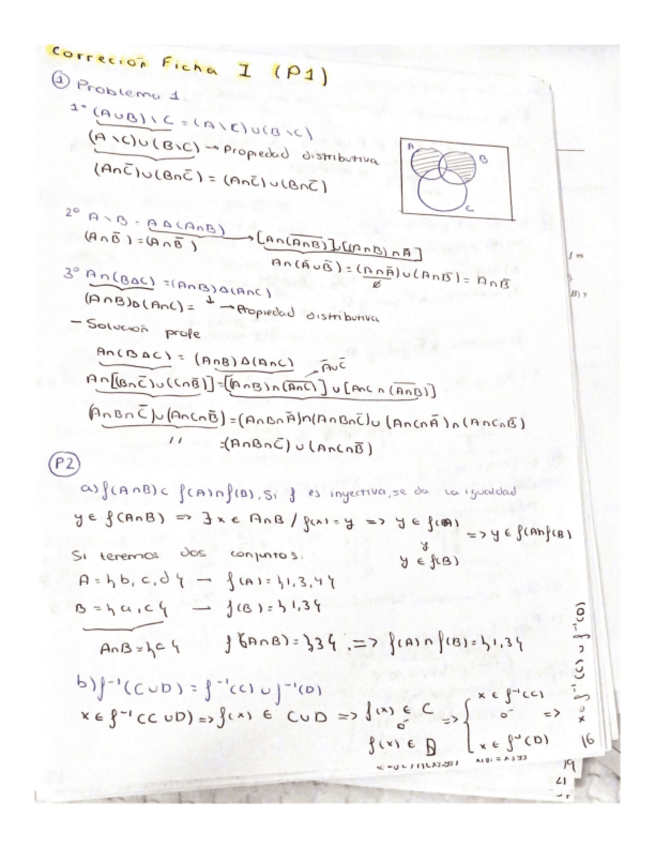 Correción Ficha I (P1)
① Problema 1.
1º (A∪B)\C = (A\C)∪(B\C)
(A\C)∪(B\C) → Propiedad distributiva
(A∩C̄)∪(B∩C̄) = (A∩C̄)∪(B∩C̄)
A
B
C
2º A\B = A∆(A∩B)
(A∩B̄) = (A∩B̄) → [A∩(\overline{A∩B})]∪[(A∩B)∩Ā]
A∩(Ā∪B̄) = (A∩Ā)∪(A∩B̄) = A∩B̄
∅
3º A∩(B∆C) = (A∩B)∆(A∩C)
(A∩B)∆(A∩C) = ↓ → Propiedad distributiva
- Solución profe
A∩(B∆C) = (A∩B)∆(A∩C)
Ā∪C̄
A∩[(B∩C̄)∪(C∩B̄)] = [(A∩B)∩(\overline{A∩C})]∪[A∩C∩(\overline{A∩B})]
(A∩B∩C̄)∪(A∩C∩B̄) = (A∩B∩Ā)∩(A∩B∩C̄)∪(A∩C∩Ā)∩(A∩C∩B̄)
'' = (A∩B∩C̄)∪(A∩C∩B̄)
P2
a) f(A∩B) ⊂ f(A)∩f(B), Si f es inyectiva, se da la igualdad
y ∈ f(A∩B) => ∃ x ∈ A∩B / f(x) = y => y ∈ f(A)
y
y ∈ f(B)
=> y ∈ f(A)∩f(B)
Si tenemos dos conjuntos.
A = {b, c, d} — f(A) = {1,3,4}
B = {a, c} — f(B) = {1,3}
A∩B = {c} f(A∩B) = {3} => f(A)∩f(B) = {1,3}
b) f⁻¹(C∪D) = f⁻¹(C) ∪ f⁻¹(D)
x ∈ f⁻¹(C∪D) => f(x) ∈ C∪D => f(x) ∈ C
o
f(x) ∈ D
=> { x ∈ f⁻¹(C)
o
x ∈ f⁻¹(D)
=>
16
19
21